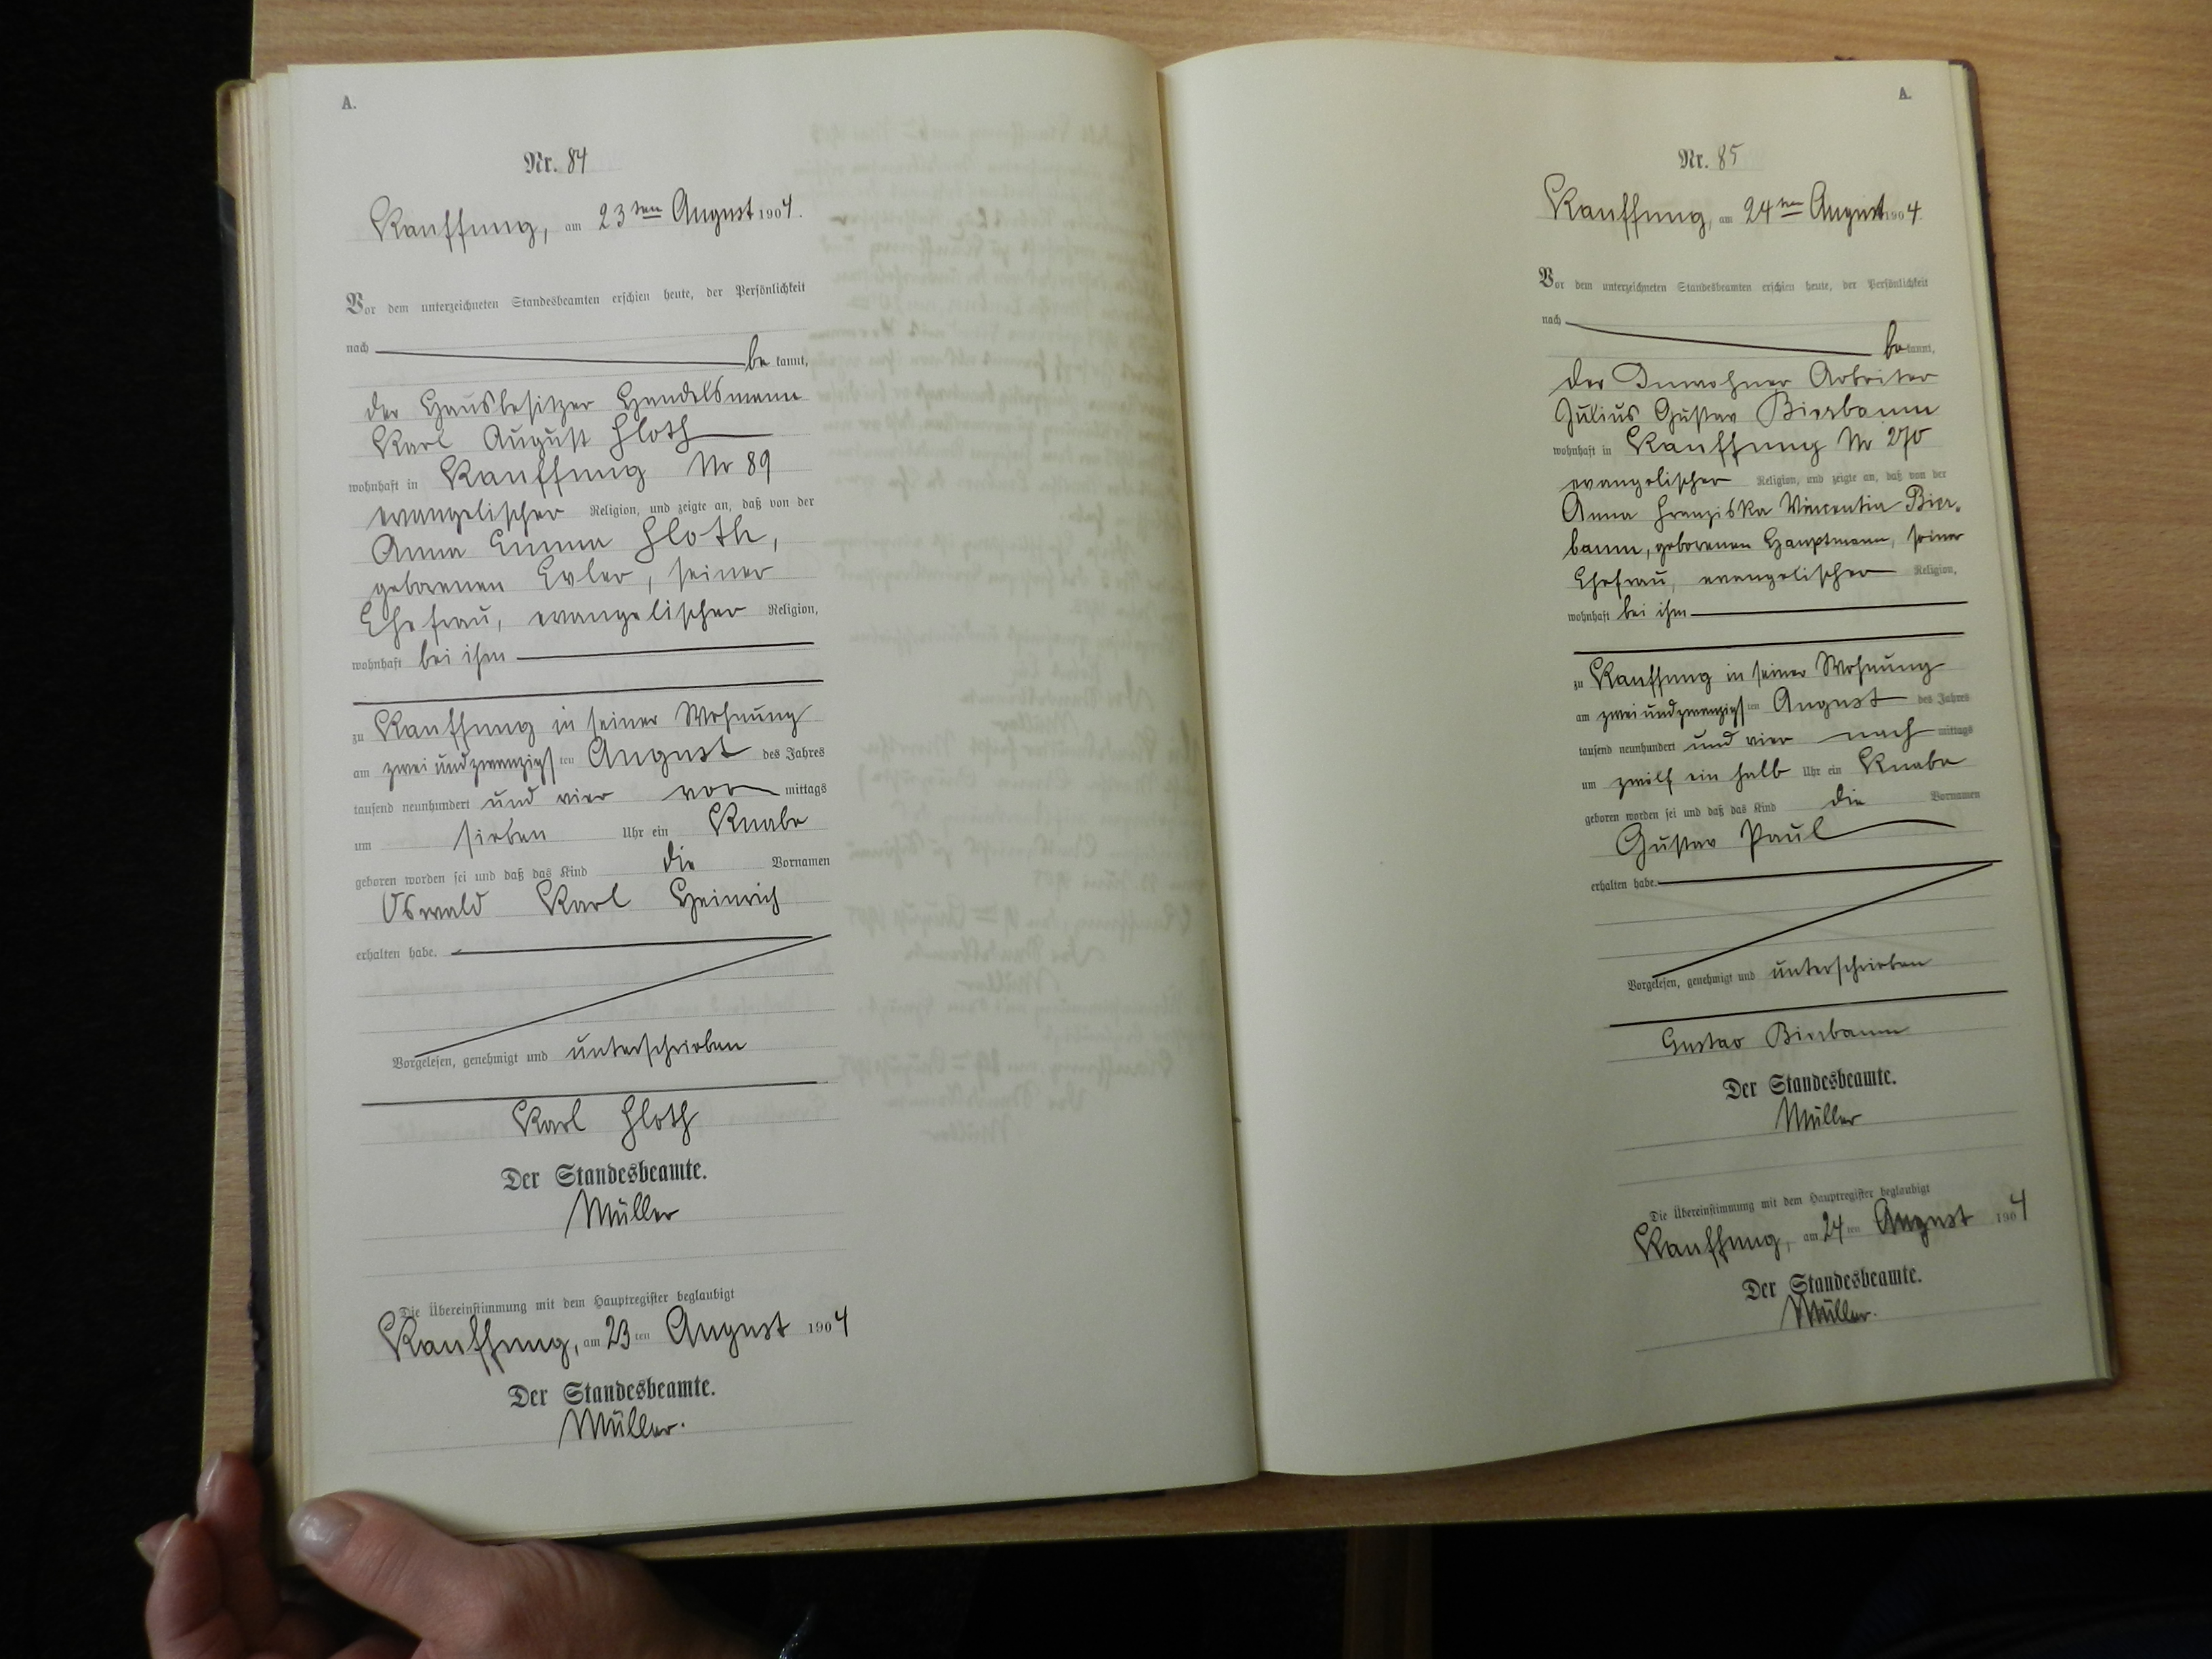 A.
Nr. 84
Kauffung, am 23ten August 1904.
Vor dem unterzeichneten Standesbeamten erschien heute, der Persönlichkeit
nach be kannt,
der Hausbesitzer Handelsmann
Karl August Floth
wohnhaft in Kauffung Nr 89
evangelischer Religion, und zeigte an, daß von der
Anna Emma Floth,
geborenen Exler, seiner
Ehefrau, evangelischer Religion,
wohnhaft bei ihm
zu Kauffung in seiner Wohnung
am zweiundzwanzigsten August des Jahres
tausend neunhundert und vier vor mittags
um sieben Uhr ein Knabe
geboren worden sei und daß das Kind die Vornamen
Oswald Karl Heinrich
erhalten habe.
Vorgelesen, genehmigt und unterschrieben
Karl Floth
Der Standesbeamte.
Müller
Die Übereinstimmung mit dem Hauptregister beglaubigt
Kauffung, am 23ten August 1904
Der Standesbeamte.
Müller.
A.
Nr. 85
Kauffung, am 24ten August 1904.
Vor dem unterzeichneten Standesbeamten erschien heute, der Persönlichkeit
nach be kannt,
der Inwohner Arbeiter
Julius Gustav Bierbaum
wohnhaft in Kauffung Nr 270
evangelischer Religion, und zeigte an, daß von der
Anna Franziska Vincentia Bier-
baum, geborenen Hauptmann, seiner
Ehefrau, evangelischer Religion,
wohnhaft bei ihm
zu Kauffung in seiner Wohnung
am zweiundzwanzigsten August des Jahres
tausend neunhundert und vier nach mittags
um zwölf ein halb Uhr ein Knabe
geboren worden sei und daß das Kind die Vornamen
Gustav Paul
erhalten habe.
Vorgelesen, genehmigt und unterschrieben
Gustav Bierbaum
Der Standesbeamte.
Müller
Die Übereinstimmung mit dem Hauptregister beglaubigt
Kauffung, am 24ten August 1904
Der Standesbeamte.
Müller.